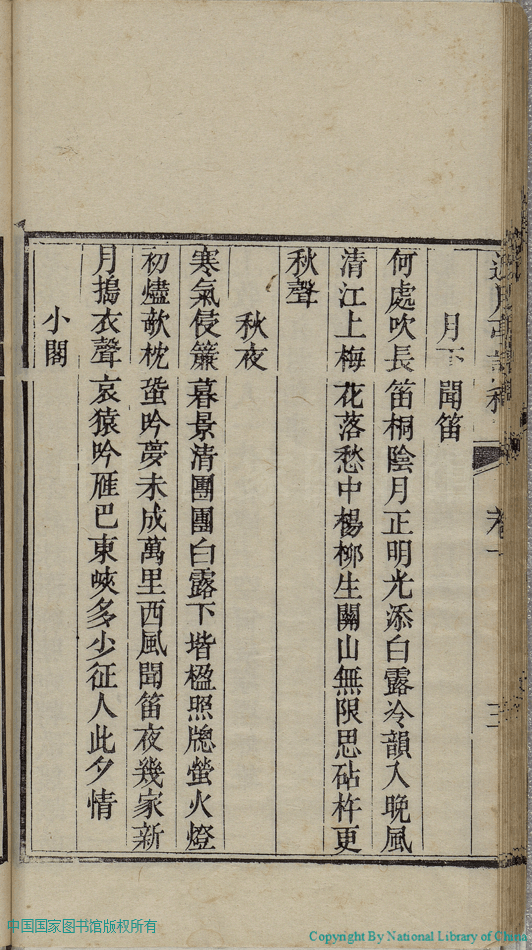 月下聞笛
何處吹長笛桐陰月正明光添白露冷韻入晚風
清江上梅花落愁中楊柳生關山無限思砧杵更
秋聲
秋夜
寒氣侵簾暮景清團團白露下堦楹照牕螢火燈
初燼欹枕蛩吟夢未成萬里西風聞笛夜幾家新
月搗衣聲哀猿吟雁巴東峽多少征人此夕情
小閣
中国国家图书馆版权所有
Copyright By National Library of China